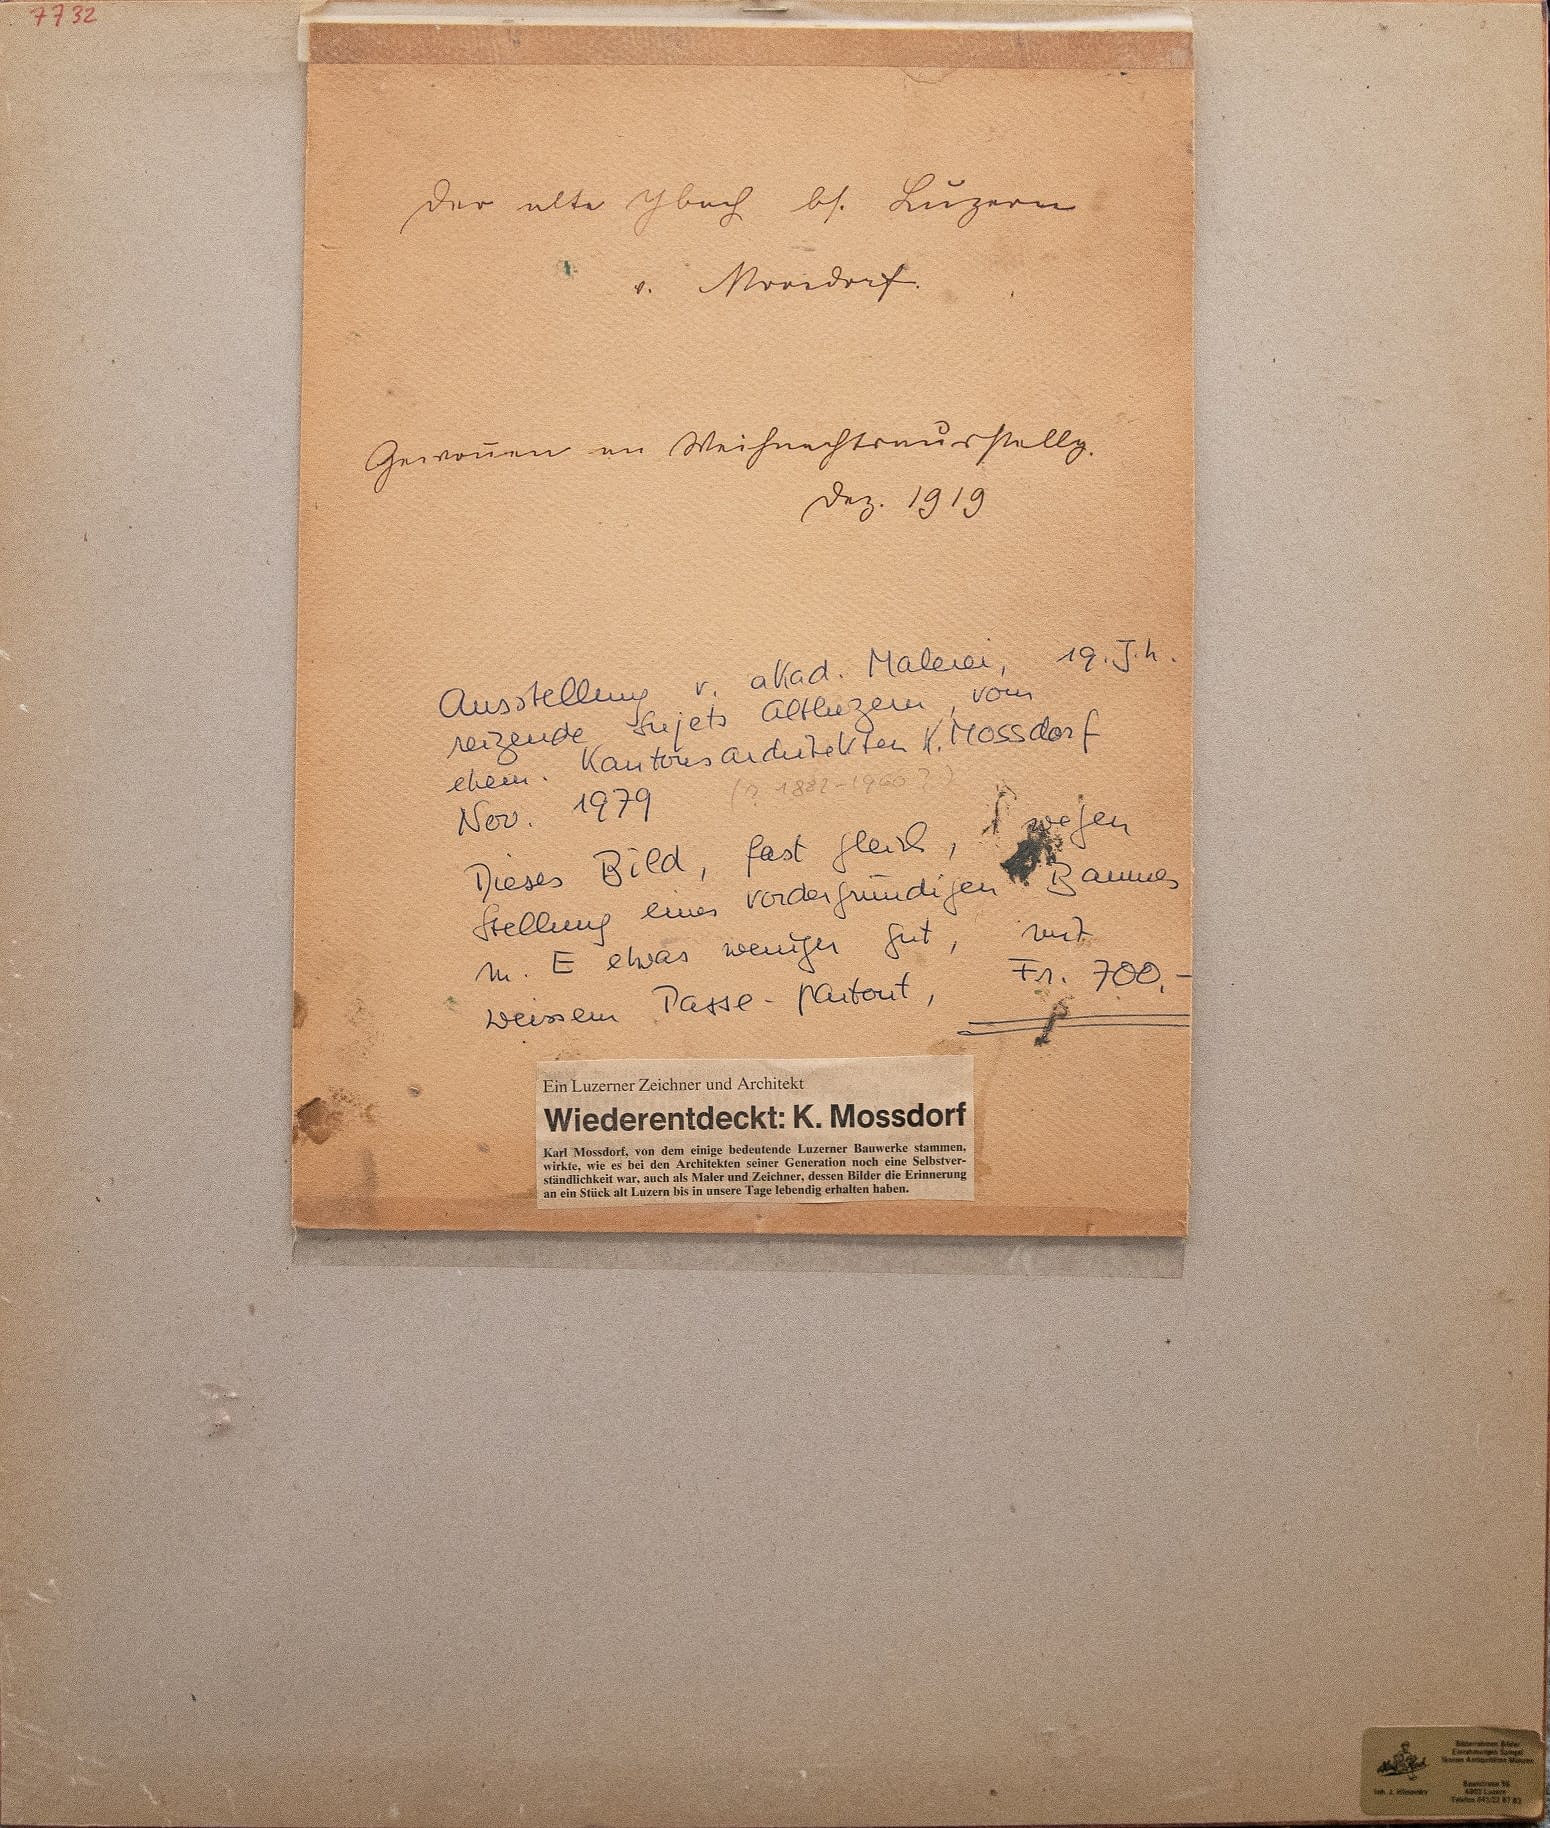 7732
Der alte Ybach bs. Luzern
v. Mossdorf.
Gewoñen an Weihnachtsausstellg.
Dez. 1919
Ausstellung v. akad. Malerei, 19. J.h.
reizende Sujets Altluzern, vom
ehem. Kantonsarchitekten K. Mossdorf
Nov. 1979 (? 1882-1960?)
Dieses Bild, fast gleich, wegen
Stellung eines vordergründigen Baumes
m. E etwas weniger gut, mit
weissem Passe-partout, Fr. 700.-
Ein Luzerner Zeichner und Architekt
Wiederentdeckt: K. Mossdorf
Karl Mossdorf, von dem einige bedeutende Luzerner Bauwerke stammen,
wirkte, wie es bei den Architekten seiner Generation noch eine Selbstver-
ständlichkeit war, auch als Maler und Zeichner, dessen Bilder die Erinnerung
an ein Stück alt Luzern bis in unsere Tage lebendig erhalten haben.
Bilderrahmen Bilder
Einrahmungen Spiegel
Antiquitäten
6003 Luzern
Telefon